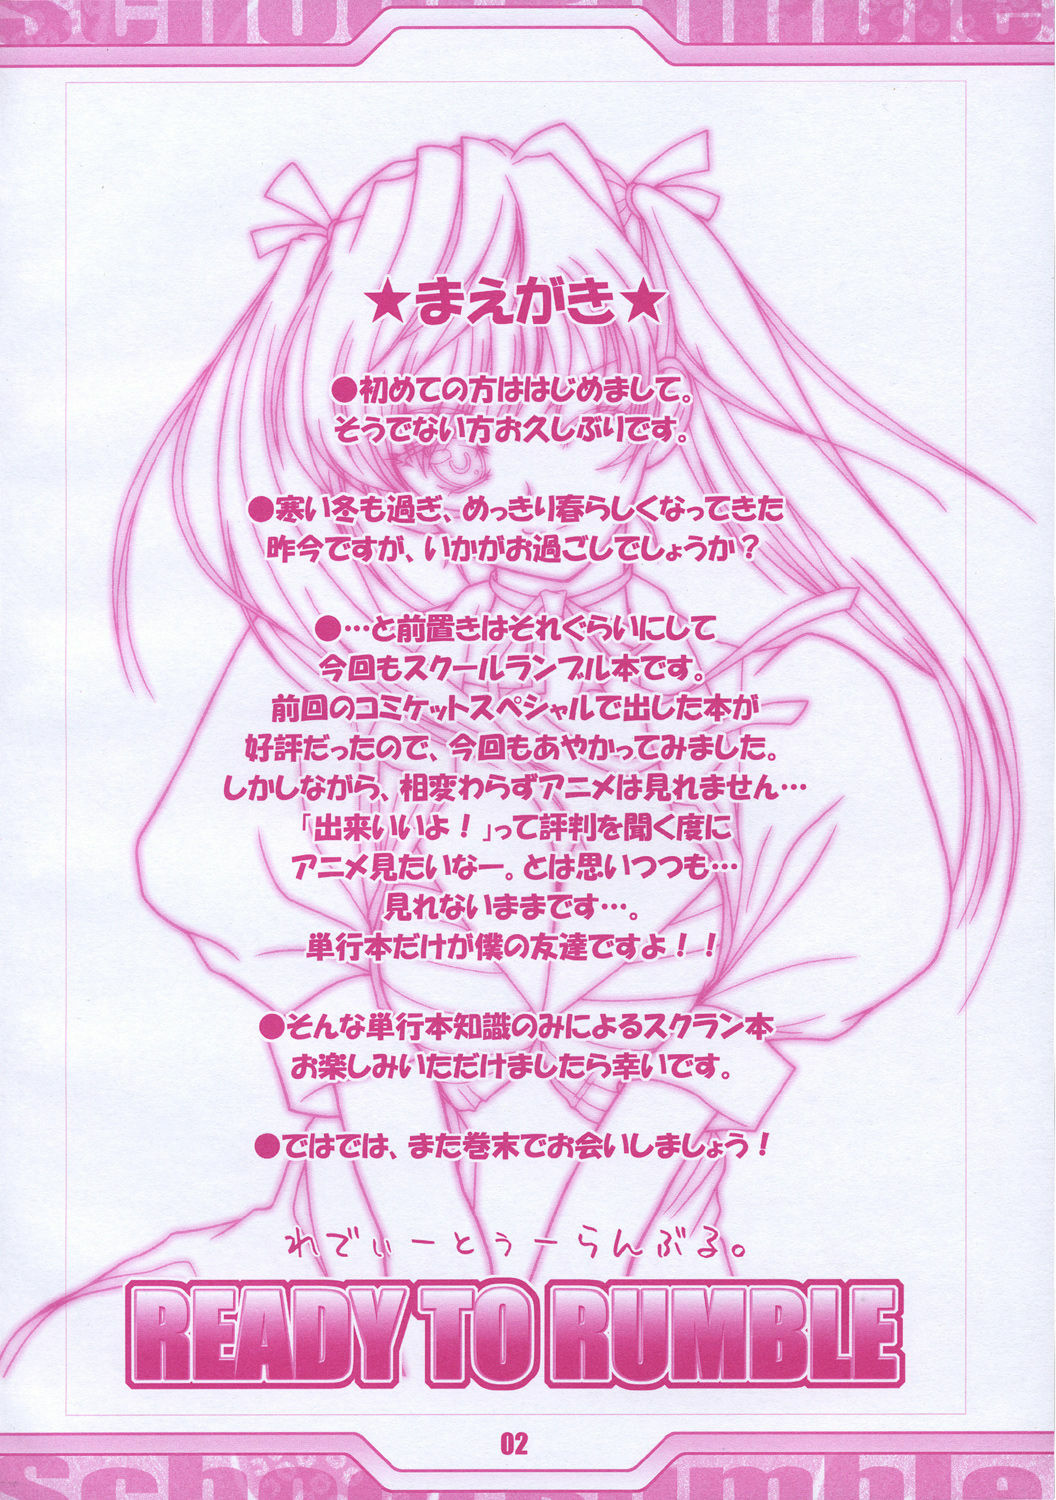 school rumble
★まえがき★
●初めての方ははじめまして。
そうでない方お久しぶりです。
●寒い冬も過ぎ、めっきり春らしくなってきた
昨今ですが、いかがお過ごしでしょうか？
●…と前置きはそれぐらいにして
今回もスクールランブル本です。
前回のコミケットスペシャルで出した本が
好評だったので、今回もあやかってみました。
しかしながら、相変わらずアニメは見れません…
「出来いいよ！」って評判を聞く度に
アニメ見たいなー。とは思いつつも…
見れないままです…。
単行本だけが僕の友達ですよ！！
●そんな単行本知識のみによるスクラン本
お楽しみいただけましたら幸いです。
●ではでは、また巻末でお会いしましょう！
れでぃーとぅーらんぶる。
READY TO RUMBLE
02
school rumble